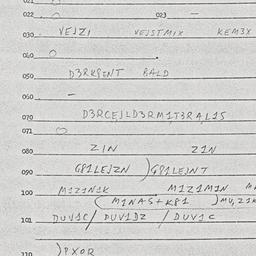 021
022 — 023 —
030 VEJZI VEJSTMIX KEM3X
040
050 D3RKPENT BALD
060 —
070 D3RCEJLD3RM1T3RALIS
071
080 ZIN ZIN
090 GPILEJZN )GPILEJNT
100 MIZINIK MIZIMIN
(MINAS+KPI )MU,ZIK
101 DUVIC/ DUVIDZ /DUVIC
110 )PXOR